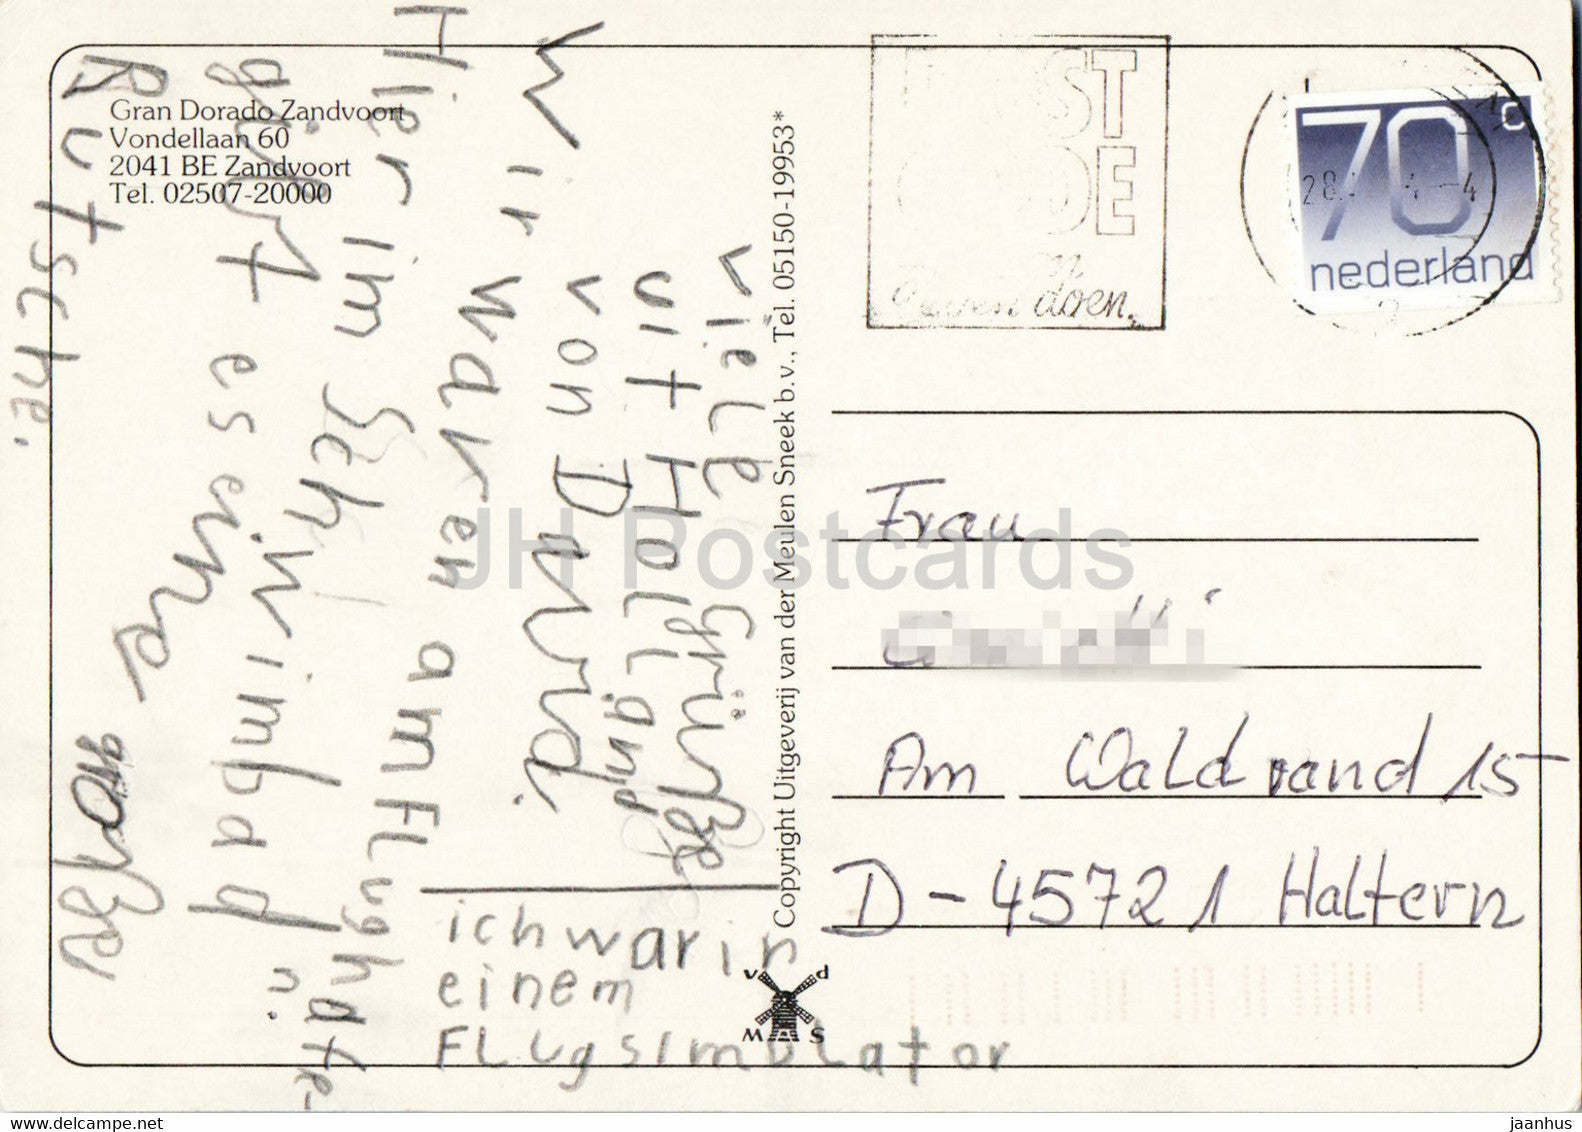 Gran Dorado Zandvoort
Vondellaan 60
2041 BE Zandvoort
Tel. 02507-20000
viele Grüße
uit Holland
von David.
Wir waren am Flughafen.
Hier im Schwimbad
gibt es eine große
Rutsche.
ich war in
einem
Flugsimulator
Copyright Uitgeverij van der Meulen Sneek b.v., Tel. 05150-19953*
v d
M S
POST
CODE
doen.
70c
nederland
28
4
Frau
Am Waldrand 15
D-45721 Haltern
JH Postcards
www.delcampe.net
jaanhus